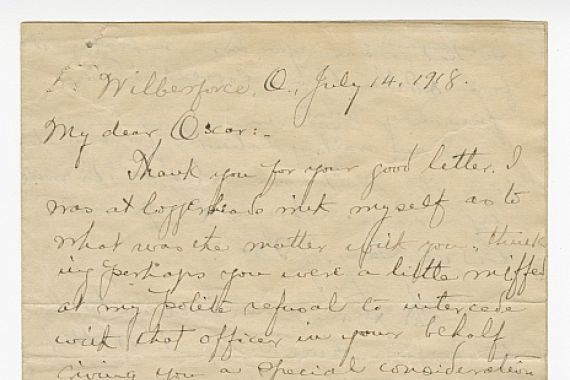 Wilberforce, O., July 14, 1918.
My dear Oscar:-
Thank you for your good letter. I
was at loggerheads with myself as to
what was the matter with you, think
ing perhaps you were a little miffed
at my polite refusal to intercede
with that officer in your behalf
giving you a special consideration